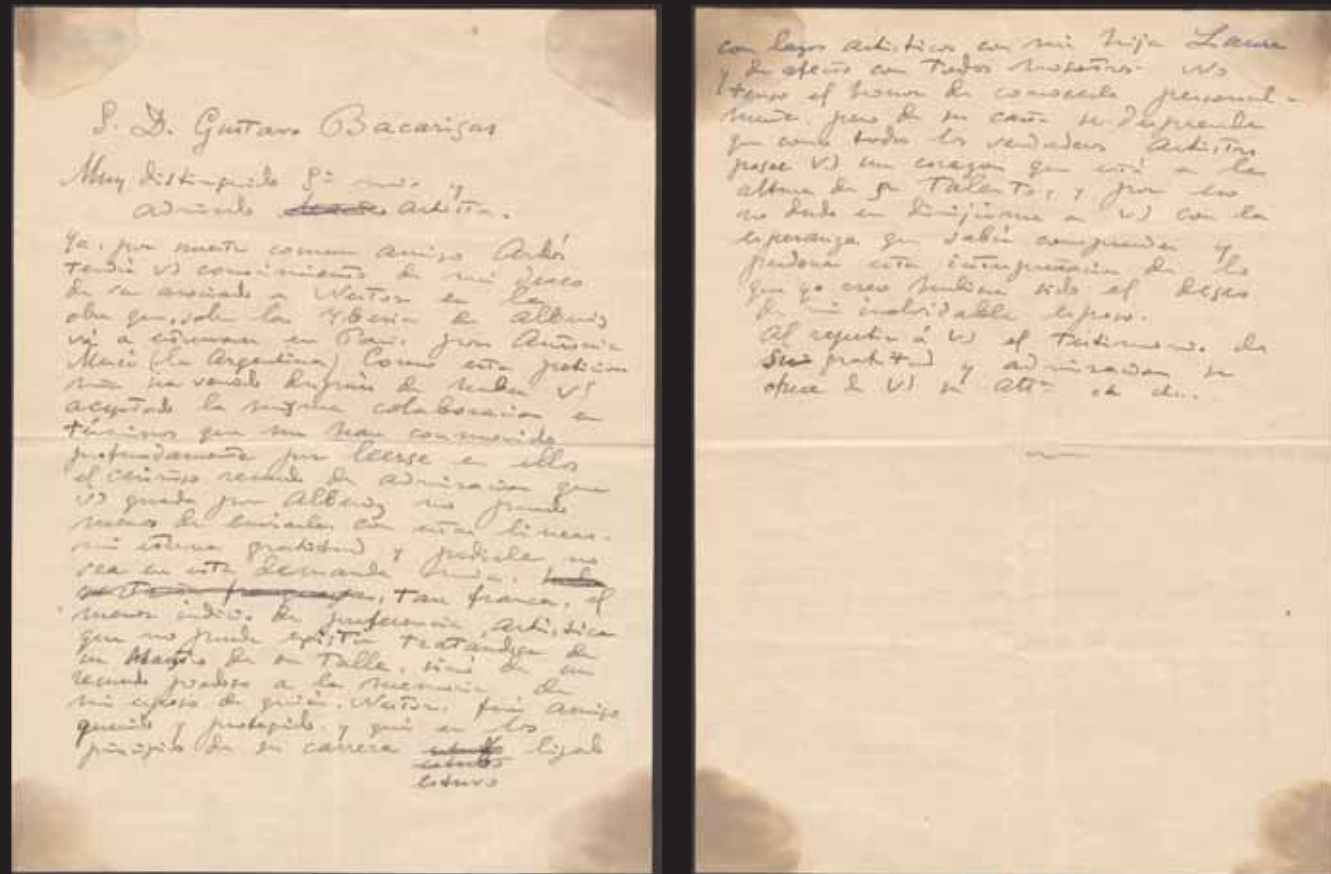 S. D. Gustavo Bacarisas
Muy distinguido Sr mio y
admirado artista.
Ya, por nuestro comun amigo Arbós
tendrá Vd conocimiento de mi deseo
de ver asociado a Nestor en la
obra que, sobre la Yberia de Albeniz
vá a estrenar en Paris por Antonia
Mercé (la Argentina) Como esta peticion
mia ha venido después de haber Vd
aceptado la misma colaboracion en
términos que me han conmovido
profundamente por leerse en ellos
el cariñoso recuerdo de admiracion que
Vd guarda por Albeniz no puedo
menos de enviarle con estas lineas
mi eterna gratitud y pedirle no
vea en esta demanda mia,
tan franca, el
menor indicio de preferencia artistica
que no puede existir tratandose de
un Maestro de su Talla, sinó de un
recuerdo piadoso a la memoria de
mi esposo de quién Nestor fué amigo
querido y protegido y que en los
principios de su carrera
estuvo ligado
con lazos artisticos con mi hija Laura
y de afecto con Todos nosotros. No
tengo el honor de conocerle personal-
mente, pero de su carta se desprende
que como todos los verdaderos Artistas
posee Vd un corazon que está a la
altura de su Talento, y por eso
no dudo en dirijirme a Vd con la
esperanza que sabrá comprender y
perdonar esta interpretacion de lo
que yo creo hubiera sido el deseo
de mi inolvidable esposo.
Al repetir á Vd el Testimonio de
gratitud y admiracion se
ofrece de Vd su atta